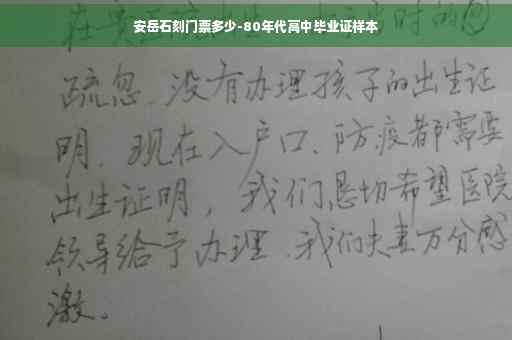 安岳石刻门票多少-80年代高中毕业证样本
疏忽、没有办理孩子的出生证
明、现在入户口、防疫都需要
出生证明，我们恳切希望医院
领导给予办理、我们夫妻万分感
激。